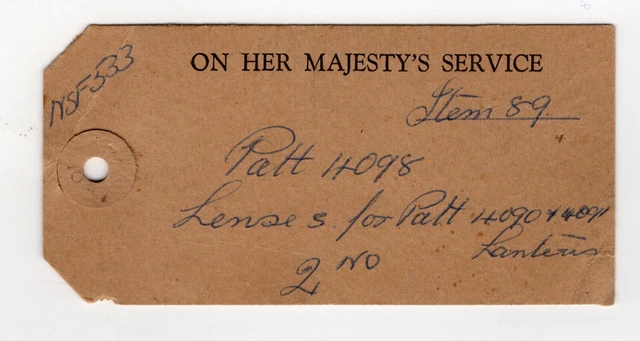 NSF533
ON HER MAJESTY'S SERVICE
Item 89.
Patt 4098
Lenses for Patt 4090 & 4091
Lanterns
2 NO